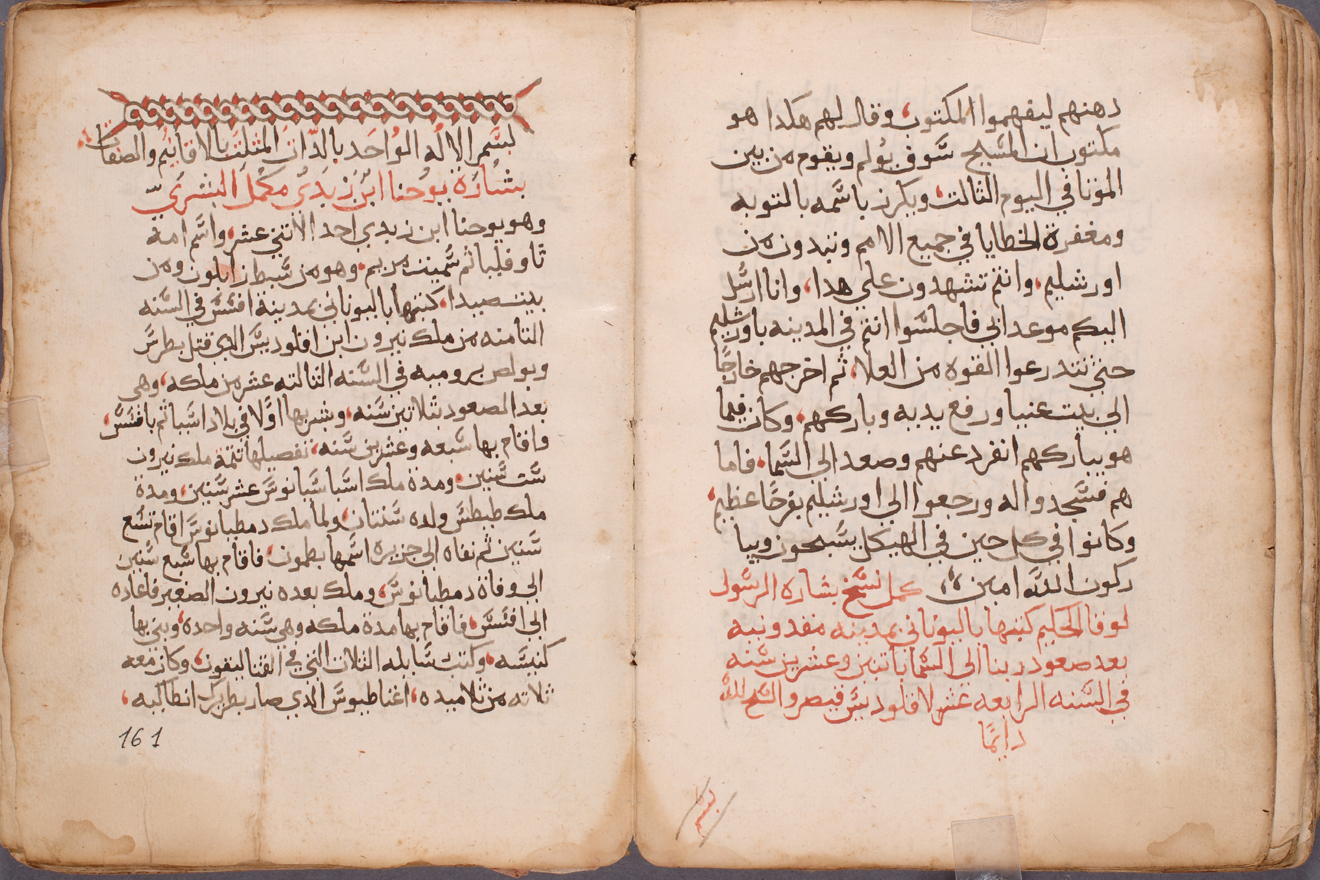 دهنهم ليفهموا المكتوب، وقال لهم هكدا هو
مكتوب ان المسيح سوف يولم ويقوم من بين
الموتا في اليوم الثالث، ويكرز باسمه بالتوبه
ومغفرة الخطايا في جميع الامم وتبدون من
اورشليم، وانتم تشهدون على هدا، وانا ارسل
اليكم موعد ابي فاجلسوا انتم في المدينه باورشليم
حتى تتدرعوا القوه من العلا، ثم اخرجهم خارجًا
الى بيت عنيا ورفع يديه وباركهم، وكان فيما
هو يباركهم انفرد عنهم وصعد الى السما، فاما
هم فسجدوا له ورجعوا الى اورشليم بفرحًا عظيم،
وكانوا في كل حين في الهيكل يسبحون ويبا
ركون الله امين، كمل نسخ بشاره الرسول
لوقا الحكيم كتبها باليوناني بمدينه مقدونيه
بعد صعود ربنا الى السما باتنين وعشرين سنه
في السنه الرابعه عشر لاقلوديس قيصر والسبح لله
دايمًا
بسم
لبسم الالاه الواحد بالدات المتلت بالاقانيم والصفات
بشارة يوحنا ابن زبدي مكمل البشري
وهو يوحنا ابن زبدي احد الاتني عشر، واسم امه
تاوفليا ثم سميت مريم، وهو من سبط زابلون ومن
بيت صيدا، كتبها باليوناني بمدينة افسس في السنه
التامنه من ملك نيرون ابن اقلوديس الدي قتل بطرس
وبولص بروميه في السنه التالته عشر من ملكه، وهي
بعد الصعود بثلاتين سنه، وبشر بها اولا في بلاد اسيا ثم بافسس،
واقام بها سبعه وعشرين سنه، تفصيلها تتمة ملك نيرون
ست سنين، ومدة ملك اسباسيانوس عشر سنين، ومدة
ملك طيطس ولده سنتان، ولما ملك دمطيانوس اقام تسع
سنين ثم نفاه الى جزيره اسمها بطمون، فاقام بها سبع سنين
الى وفاة دمطيانوس، وملك بعده نيرون الصغير فاعاده
الى افسس، فاقام بها مدة ملكه وهي سنه واحده، وبنى بها
كنيسه، وكتب رسايله التلات التي في القتاليقون، وكان معه
ثلاته من تلاميده، اغناطيوس الدي صار بطريرك انطاكيه،
161